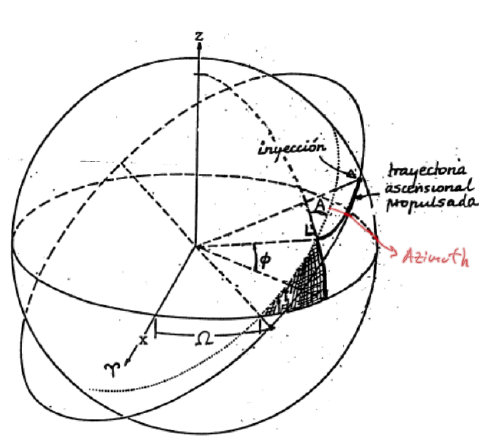 z
inyección
trayectoria
ascensional
propulsada
A
L
Azimuth
ϕ
Ω
x
♈